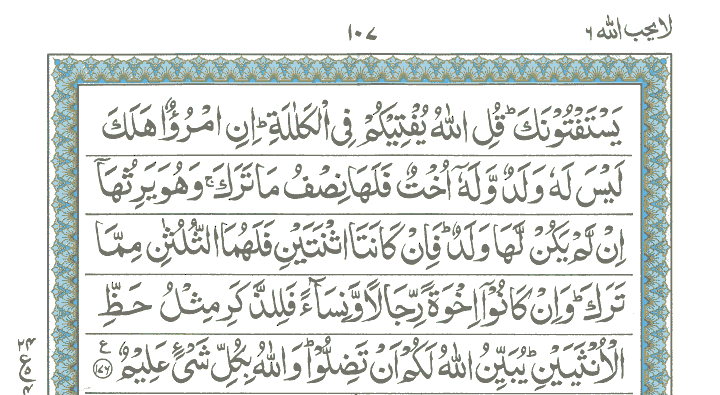 لا يحب الله ٦
١٠٧
يَسْتَفْتُوْنَكَ ؕ قُلِ اللّٰهُ يُفْتِيْكُمْ فِى الْكَلٰلَةِ ؕ اِنِ امْرُؤٌا هَلَكَ
لَيْسَ لَهٗ وَلَدٌ وَّلَهٗۤ اُخْتٌ فَلَهَا نِصْفُ مَا تَرَكَ ۚ وَهُوَ يَرِثُهَاۤ
اِنْ لَّمْ يَكُنْ لَّهَا وَلَدٌ ؕ فَاِنْ كَانَتَا اثْنَتَيْنِ فَلَهُمَا الثُّلُثٰنِ مِمَّا
تَرَكَ ؕ وَاِنْ كَانُوْۤا اِخْوَةً رِّجَالًا وَّنِسَآءً فَلِلذَّكَرِ مِثْلُ حَظِّ
الْاُنْثَيَيْنِ ؕ يُبَيِّنُ اللّٰهُ لَكُمْ اَنْ تَضِلُّوْا ؕ وَاللّٰهُ بِكُلِّ شَىْءٍ عَلِيْمٌ ع ١٧٦
٢٤
ع
٥
٤